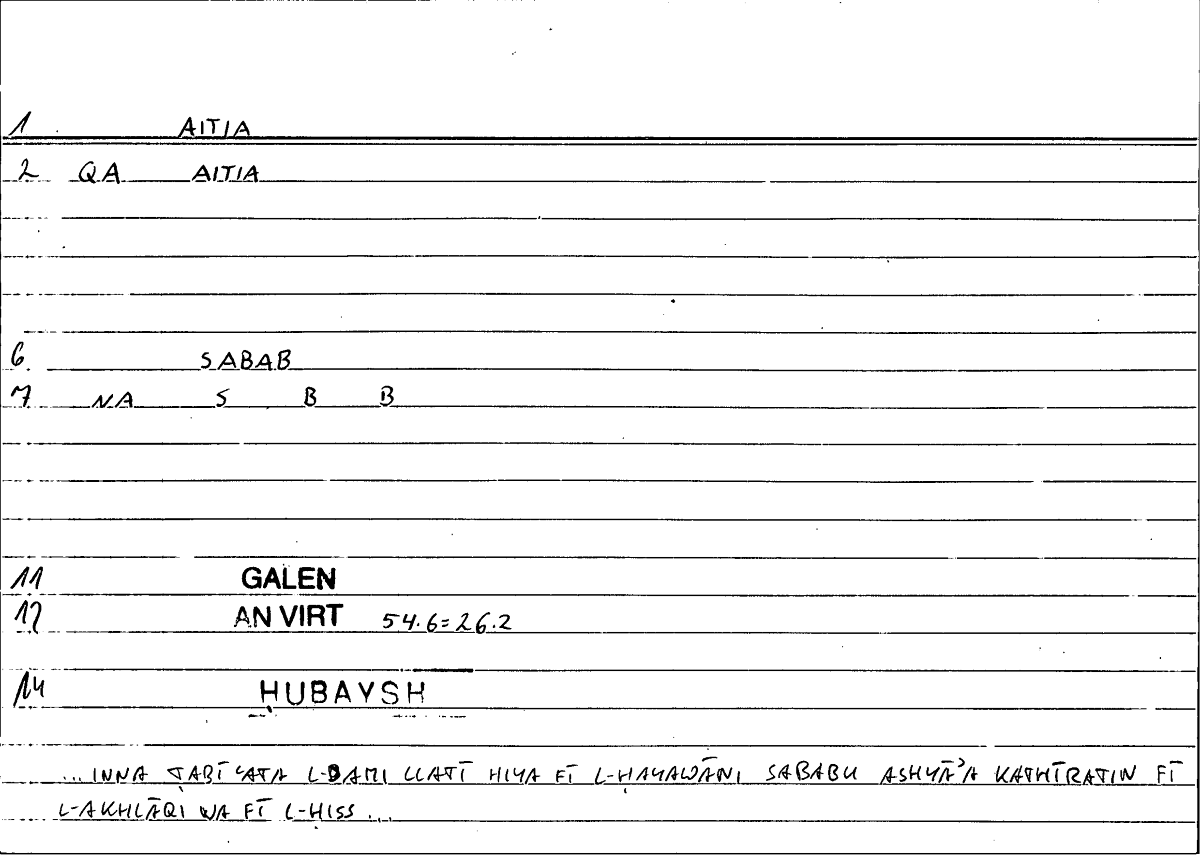 1 AITIA
2 QA AITIA
6 SABAB
7 NA S B B
11 GALEN
12 AN VIRT 54.6=26.2
14 ḤUBAYSH
...INNA ṬABĪʿATA L-DAMI LLATĪ HIYA FĪ L-ḤAYAWĀNI SABABU ASHYĀʾA KATHĪRATIN FĪ
L-AKHLĀQI WA FĪ L-ḤISS...